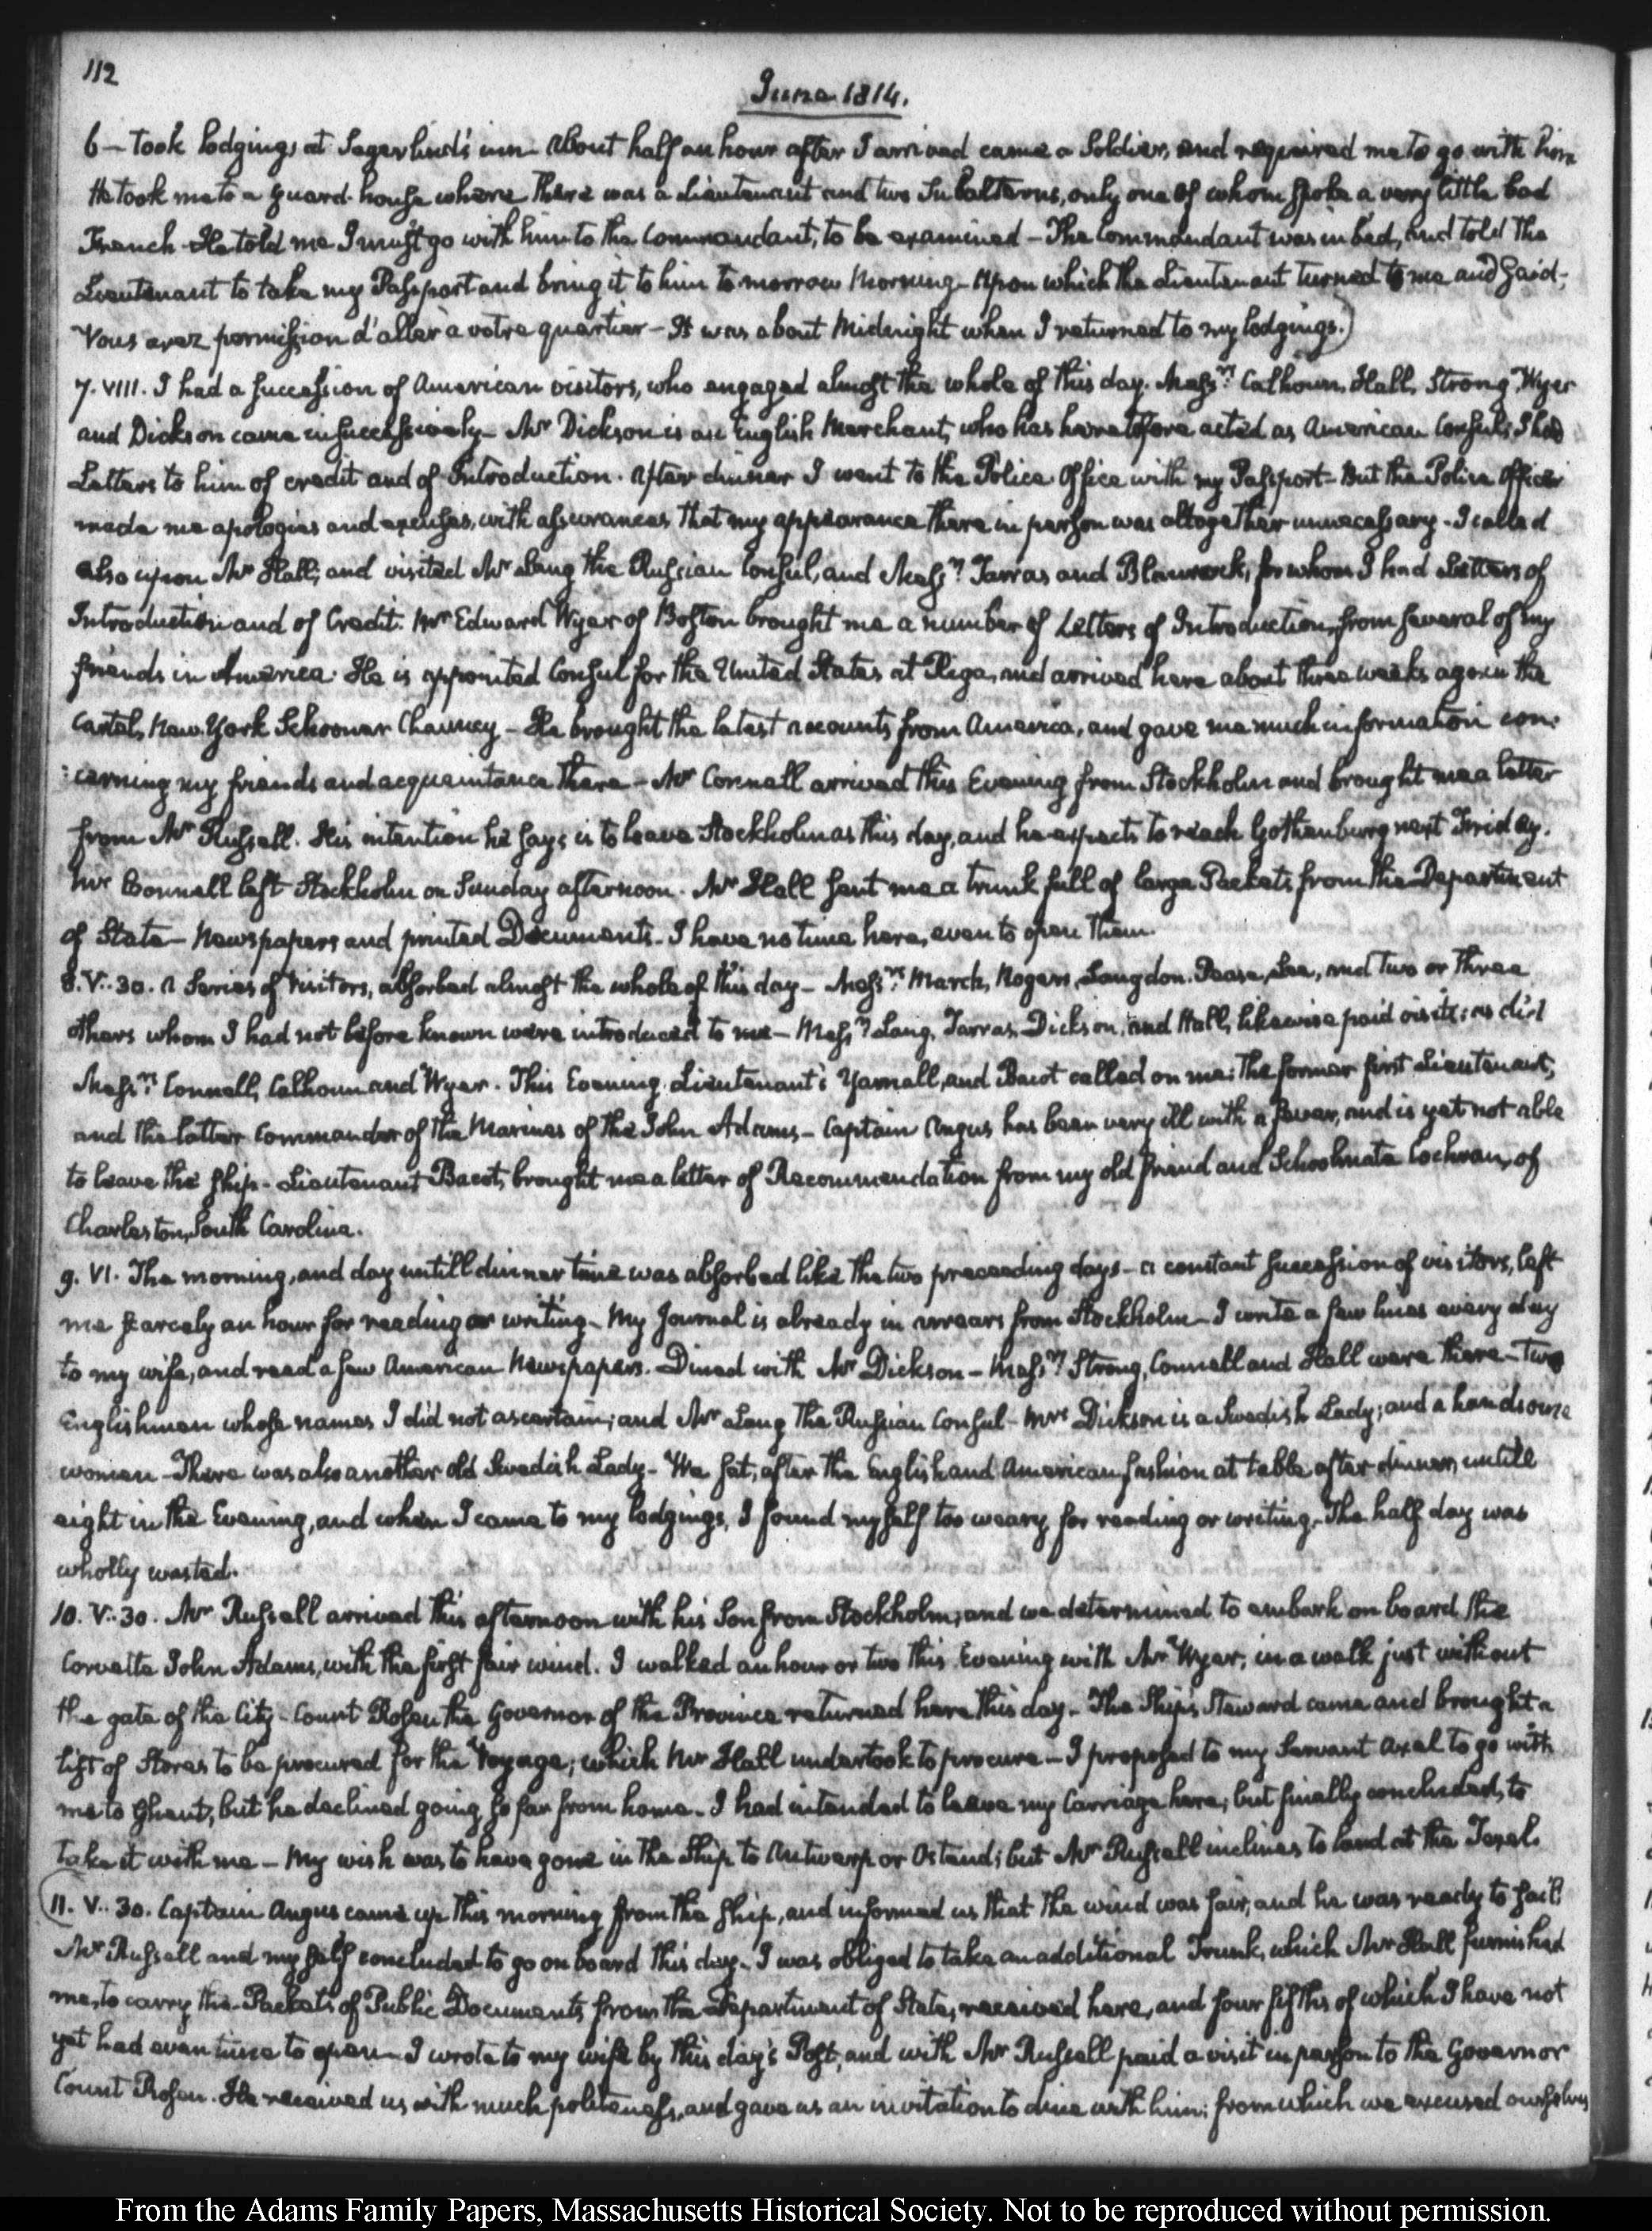 112
June 1814.
6 – Took lodgings at Segerlind's inn – About half an hour after I arrived came a Soldier, and required me to go with him
He took me to a guard-house where there was a Lieutenant and two Subalterns, only one of whom spoke a very little bad
French – He told me I must go with him to the Commandant, to be examined – The Commandant was in bed, and told the
Lieutenant to take my Passport and bring it to him to morrow Morning – Upon which the Lieutenant turned to me and said –
Vous avez permission d'aller a votre quartier – It was about Midnight when I returned to my lodgings.)
7. VIII. I had a succession of American visitors, who engaged almost the whole of this day. Messrs. Calhoun, Hall, Strong, Wyer
and Dickson came in successively – Mr Dickson is an English Merchant, who has heretofore acted as American Consul; I had
Letters to him of credit and of Introduction. After dinner I went to the Police Office with my Passport – But the Police Officer
made me apologies and excuses, with assurances that my appearance there in person was altogether unnecessary – I called
also upon Mr Hall; and visited Mr Lang the Russian Consul, and Messrs. Tarras and Blaurock, for whom I had Letters of
Introduction and of Credit. Mr Edward Wyer of Boston brought me a number of Letters of Introduction, from several of my
friends in America. He is appointed Consul for the United States at Riga, and arrived here about three weeks ago in the
Cartel, New-York Schooner Chauncy – He brought the latest accounts from America, and gave me much information con:
:cerning my friends and acquaintance there – Mr Connell arrived this Evening from Stockholm and brought me a letter
from Mr Russell. His intention he says is to leave Stockholm as this day, and he expects to reach Gothenburg next Friday.
Mr Connell left Stockholm on Sunday afternoon. Mr Hall sent me a trunk full of large Packets from the Department
of State – Newspapers and printed Documents. I have no time here, even to open them.
8. V:30. A Series of Visitors, absorbed almost the whole of this day – Messrs. March, Rogers, Langdon, Pease, Lee, and two or three
others whom I had not before known were introduced to me – Messrs. Lang, Tarras, Dickson, and Hall, likewise paid visits; as did
Messrs. Connell, Calhoun and Wyer. This Evening, Lieutenant's Yarnall, and Bacot called on me: the former first Lieutenant,
and the latter Commander of the Marines of the John Adams – Captain Angus has been very ill with a fever, and is yet not able
to leave the ship – Lieutenant Bacot, brought me a letter of Recommendation from my old friend and Schoolmate Cochran, of
Charleston, South Carolina.
9. VI. The morning, and day untill dinner time was absorbed like the two preceeding days – a constant succession of visitors, left
me scarcely an hour for reading or writing – My Journal is already in arrears from Stockholm – I write a few lines every day
to my wife, and read a few American Newspapers. Dined with Mr Dickson – Messrs. Strong, Connell and Hall were there – Two
Englishmen whose names I did not ascertain; and Mr Lang the Russian Consul – Mrs Dickson is a Swedish Lady; and a handsome
woman – There was also another old Swedish Lady – We sat, after the English and American fashion at table after dinner, untill
eight in the Evening, and when I came to my lodgings, I found myself too weary for reading or writing. The half day was
wholly wasted.
10. V:30. Mr Russell arrived this afternoon with his Son from Stockholm; and we determined to embark on board the
Corvette John Adams, with the first fair wind. I walked an hour or two this Evening with Mr Wyer, in a walk just without
the gate of the City – Count Rosen the Governor of the Province returned here this day – The Ship's Steward came and brought a
list of Stores to be procured for the Voyage; which Mr Hall undertook to procure – I proposed to my Servant Axel to go with
me to Ghent, but he declined going so far from home – I had intended to leave my Carriage here; but finally concluded, to
take it with me – My wish was to have gone in the Ship to Antwerp or Ostend; but Mr Russell inclines to land at the Texel.
11. V:30. Captain Angus came up this morning from the ship, and informed us that the wind was fair, and he was ready to sail:
Mr Russell and myself concluded to go on board this day. I was obliged to take an additional Trunk, which Mr Hall furnished
me, to carry the Packets of Public Documents from the Department of State, received here, and four fifths of which I have not
yet had even time to open – I wrote to my wife by this day's Post, and with Mr Russell paid a visit in person to the Governor
Count Rosen. He received us with much politeness, and gave us an invitation to dine with him; from which we excused ourselves
From the Adams Family Papers, Massachusetts Historical Society. Not to be reproduced without permission.